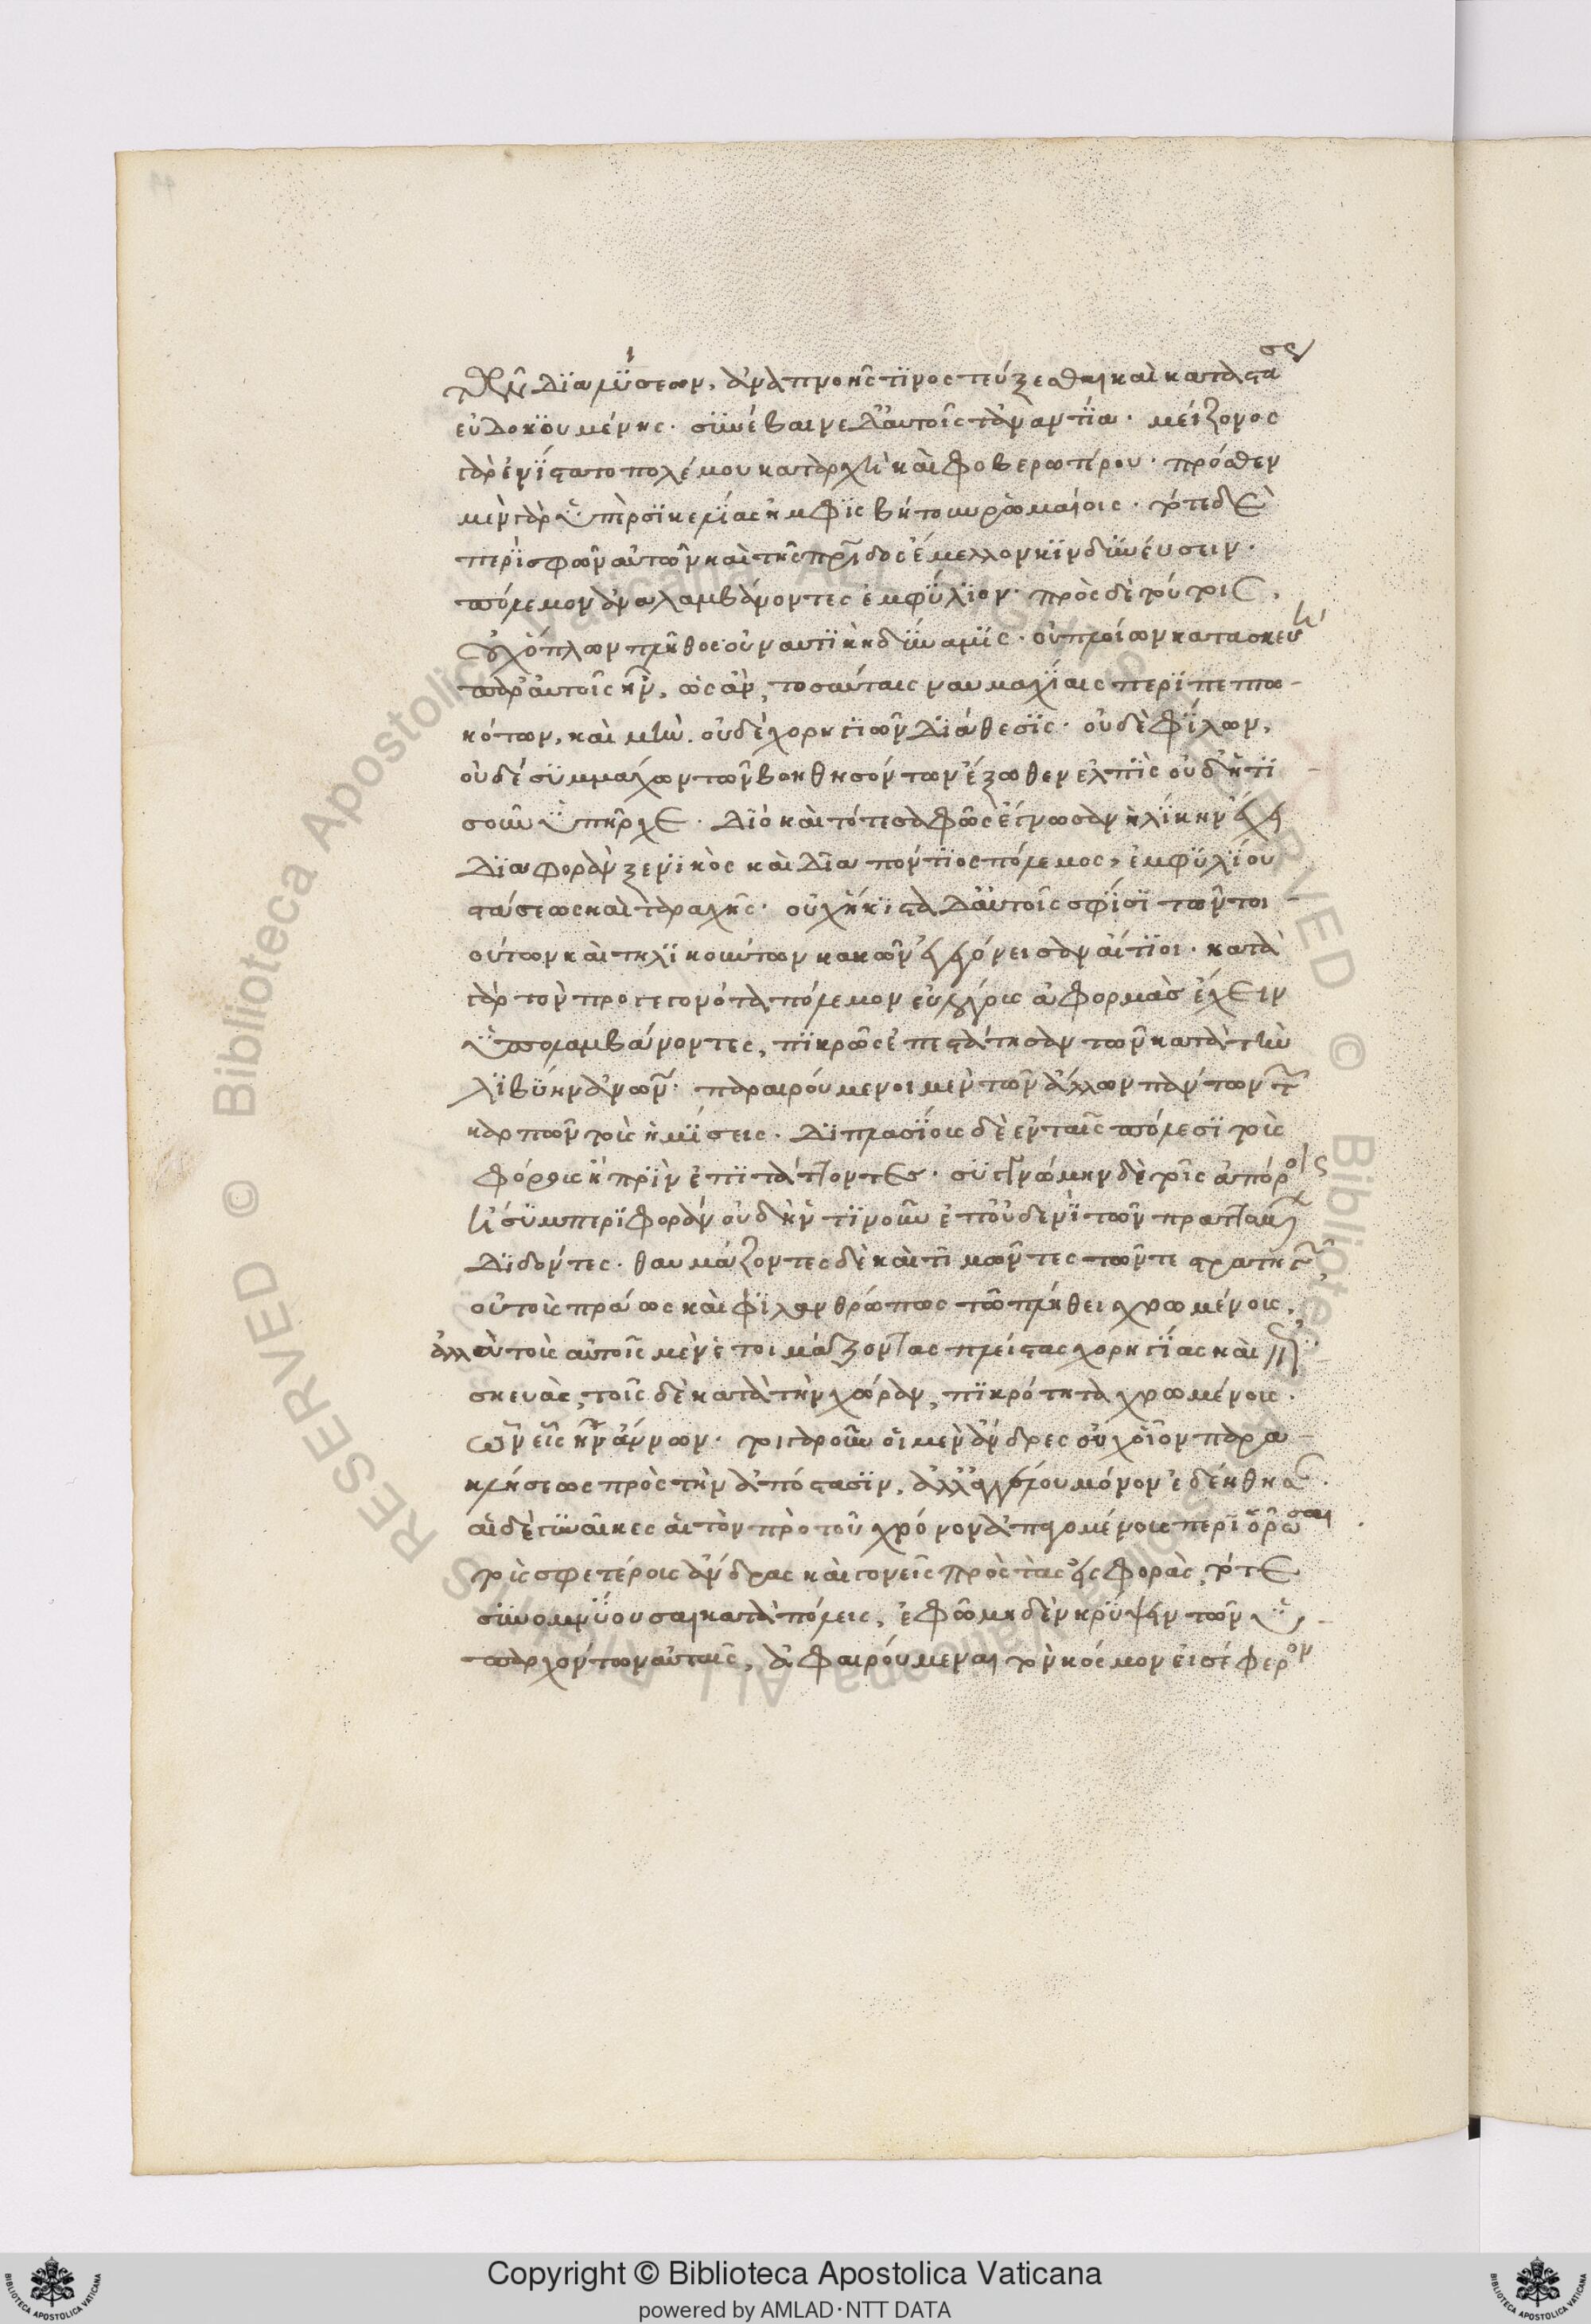 τικῶν διαλύσεων, ἀναπνοῆς τινος τεύξεσθαι καὶ καταστάσεως
εὐδοκουμένης. συνέβαινε δ' αὐτοῖς τἀναντία. μείζονος
γὰρ ἐνίστατο πολέμου καταρχὴ καὶ φοβερωτέρου. πρόσθεν
μὲν γὰρ ὑπὲρ σικελίας ἠμφισβήτουν ῥωμαίοις. τότε δὲ
περὶ σφῶν αὐτῶν καὶ τῆς πατρίδος ἔμελλον κινδυνεύσειν.
πόλεμον ἀναλαμβάνοντες ἐμφύλιον. πρὸς δὲ τούτοις,
οὐχ ὅπλων πλῆθος οὐ ναυτικὴ δύναμις. οὐ πλοίων κατασκευὴ
παρ' αὐτοῖς ἦν, ὡς ἂν, τοσαύταις ναυμαχίαις περιπεπτω-
κότων, καὶ μὴν. οὐδὲ χορηγιῶν διάθεσις. οὐδὲ φίλων,
οὐδὲ συμμάχων τῶν βοηθησόντων ἔξωθεν ἐλπὶς οὐδ' ἥτι
σοῦν ὑπῆρχε. διὸ καὶ τότε σαφῶς ἔγνωσαν ἡλίκην ἔχει
διαφορὰν ξενικὸς καὶ διαπόντιος πόλεμος, ἐμφυλίου
στάσεως καὶ ταραχῆς. οὐχ ἥκιστα δ' αὐτοῖς σφίσι τῶν τοι-
ούτων καὶ τηλικούτων κακῶν ἐγεγόνεισαν αἴτιοι. κατὰ
γὰρ τὸν προγεγονότα πόλεμον εὐλόγους ἀφορμὰς ἔχειν
ὑπολαμβάνοντες, πικρῶς ἐπεστάτησαν τῶν κατὰ τὴν
λιβύην ἀνων. παραιρούμενοι μὲν τῶν ἄλλων πάντων τῶν
καρπῶν τοὺς ἡμίσεις. διπλασίους δὲ ἐν ταῖς πόλεσι τοὺς
φόρους ἢ πρὶν ἐπιτάττοντες. συγγνώμην δὲ τοῖς ἀπόροις
ἢ συμπεριφορὰν οὐδ' ἥντινοῦν ἐπ' οὐδενὶ τῶν πραττομένων
διδόντες. θαυμάζοντες δὲ καὶ τιμῶντες τῶν τε στρατηγῶν
οὐ τοὺς πράως καὶ φιλανθρώπως τῶ πλήθει χρωμένους,
ἀλλὰ τοὺς αὐτοῖς μὲν ἑτοιμάζοντας πλείστας χορηγίας καὶ
σκευὰς, τοῖς δὲ κατὰ τὴν χώραν, πικρότητα χρωμένους.
ὧν εἷς ἦν ἄννων. τοιγαροῦν οἱ μὲν ἄνδρες οὐχ οἷον παρα-
κλήσεως πρὸς τὴν ἀπόστασιν, ἀλλ' ἀγγέλου μόνον ἐδεήθησαν.
αἱ δὲ γυναῖκες αἱ τὸν πρὸ τοῦ χρόνον ἀπαγομένους περιορῶσαι
τοὺς σφετέρους ἄνδρας καὶ γονεῖς πρὸς τὰς εἰσφορὰς, τότε
συνομνύουσαι κατὰ πόλεις, ἐφ' ὧ μηδὲν κρύψειν τῶν ὑ-
παρχόντων αὐταῖς, ἀφαιρούμεναι τὸν κόσμον εἰσέφερον